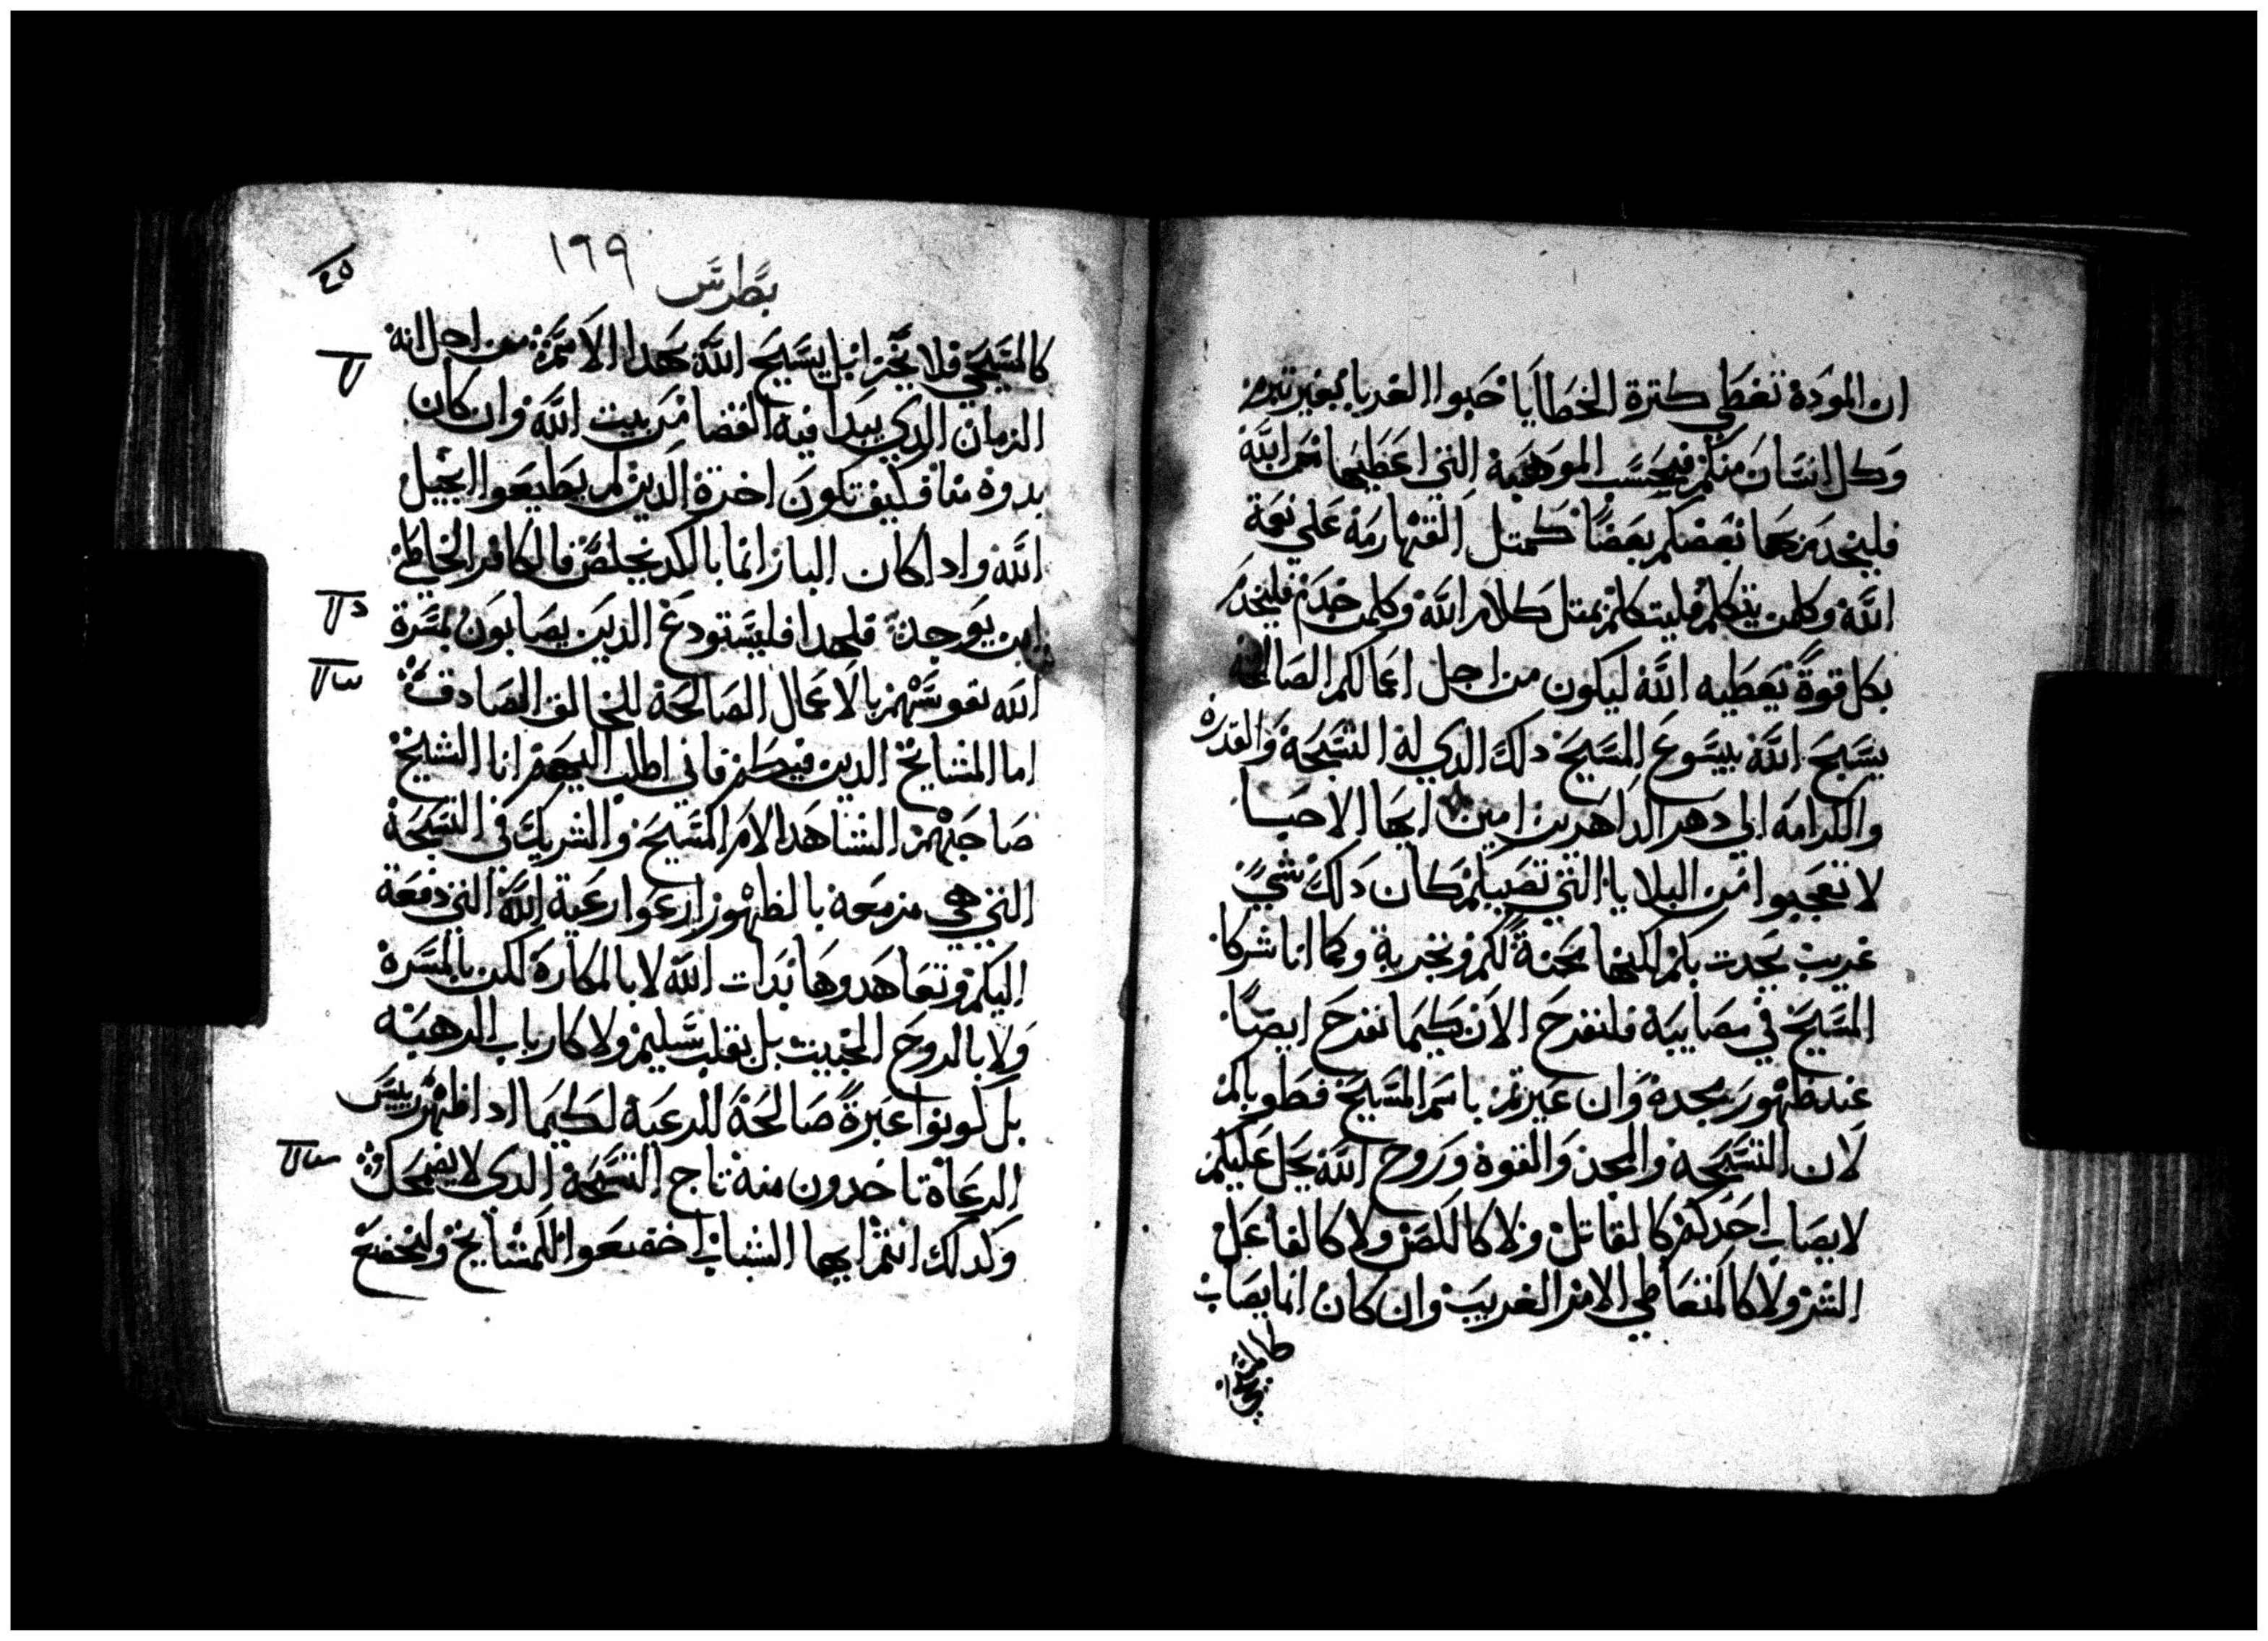 ان المودة تغطي كترة الخطايا حبوا الغربا بغير تبرم
وكل انسان منكم فبحسب الموهبة التي اعطيها من الله
فليخدم بها بعضكم بعضا كمتل القهارمة علي نعمة
الله وكلمن يتكلم فليتكلم بمتل كلام الله وكلمن خدم فليخدم
بكل قوة يعطيه الله ليكون من اجل اعمالكم الصالحة
يسبح الله بيسوع المسيح دلك الدي له التسبحة والقدرة
والكرامة الي دهر الداهرين امين ايها الاحبا
لا تعجبوا من البلايا التي تصيبكم كان دلك شي
غريب يحدت بكم لكنها محنة لكم وتجربة وكما انا شركا
المسيح في مصايبة فلنفرح الان كيما نفرح ايضا
عند ظهور مجدة وان عيرتم باسم المسيح فطوباكم
لان التسبحة والمجد والقوة وروح الله يحل عليكم
لا يصاب احدكم كالقاتل ولا كاللص ولا كالفاعل
الشر ولا كالمتعاطي الامر الغريب وان كان انما يصاب
كالمسيحي
١٦٩
بطرس
كالمسيحي فلا يخزا بل يسبح الله بهدا الاسم من اجل انه
الزمان الدي يبدا فيه القضا من بيت الله وان كان
بدوه منا فكيف تكون اخرة الدين لم يطيعوا انجيل
الله وادا كان البار انما بالكد يخلص فالكافر الخاطي
اين يوجد فلهدا فليستودع الدين يصابون بمسرة
الله نفوسهم بالاعمال الصالحة للخالق الصادق
اما المشايخ الدين فيكم فاني اطلب اليهم انا الشيخ
صاحبهم الشاهد الام المسيح والشريك في التسبحة
التي هي مزمعة بالظهور ارعوا رعية الله التي دفعة
اليكم وتعاهدوها بدات الله لا بالمكارة لكن بالمسرة
ولا بالروح الخبيت بل بقلب سليم ولا كارباب الرهبه
بل كونوا عبرة صالحة للرعية لكيما ادا ظهر رييس
الرعاة تاخدون منه تاج التسبحة الدي لا يضمحل
وكدلك انتم ايها الشباب اخضعوا للمشايخ وليخضع